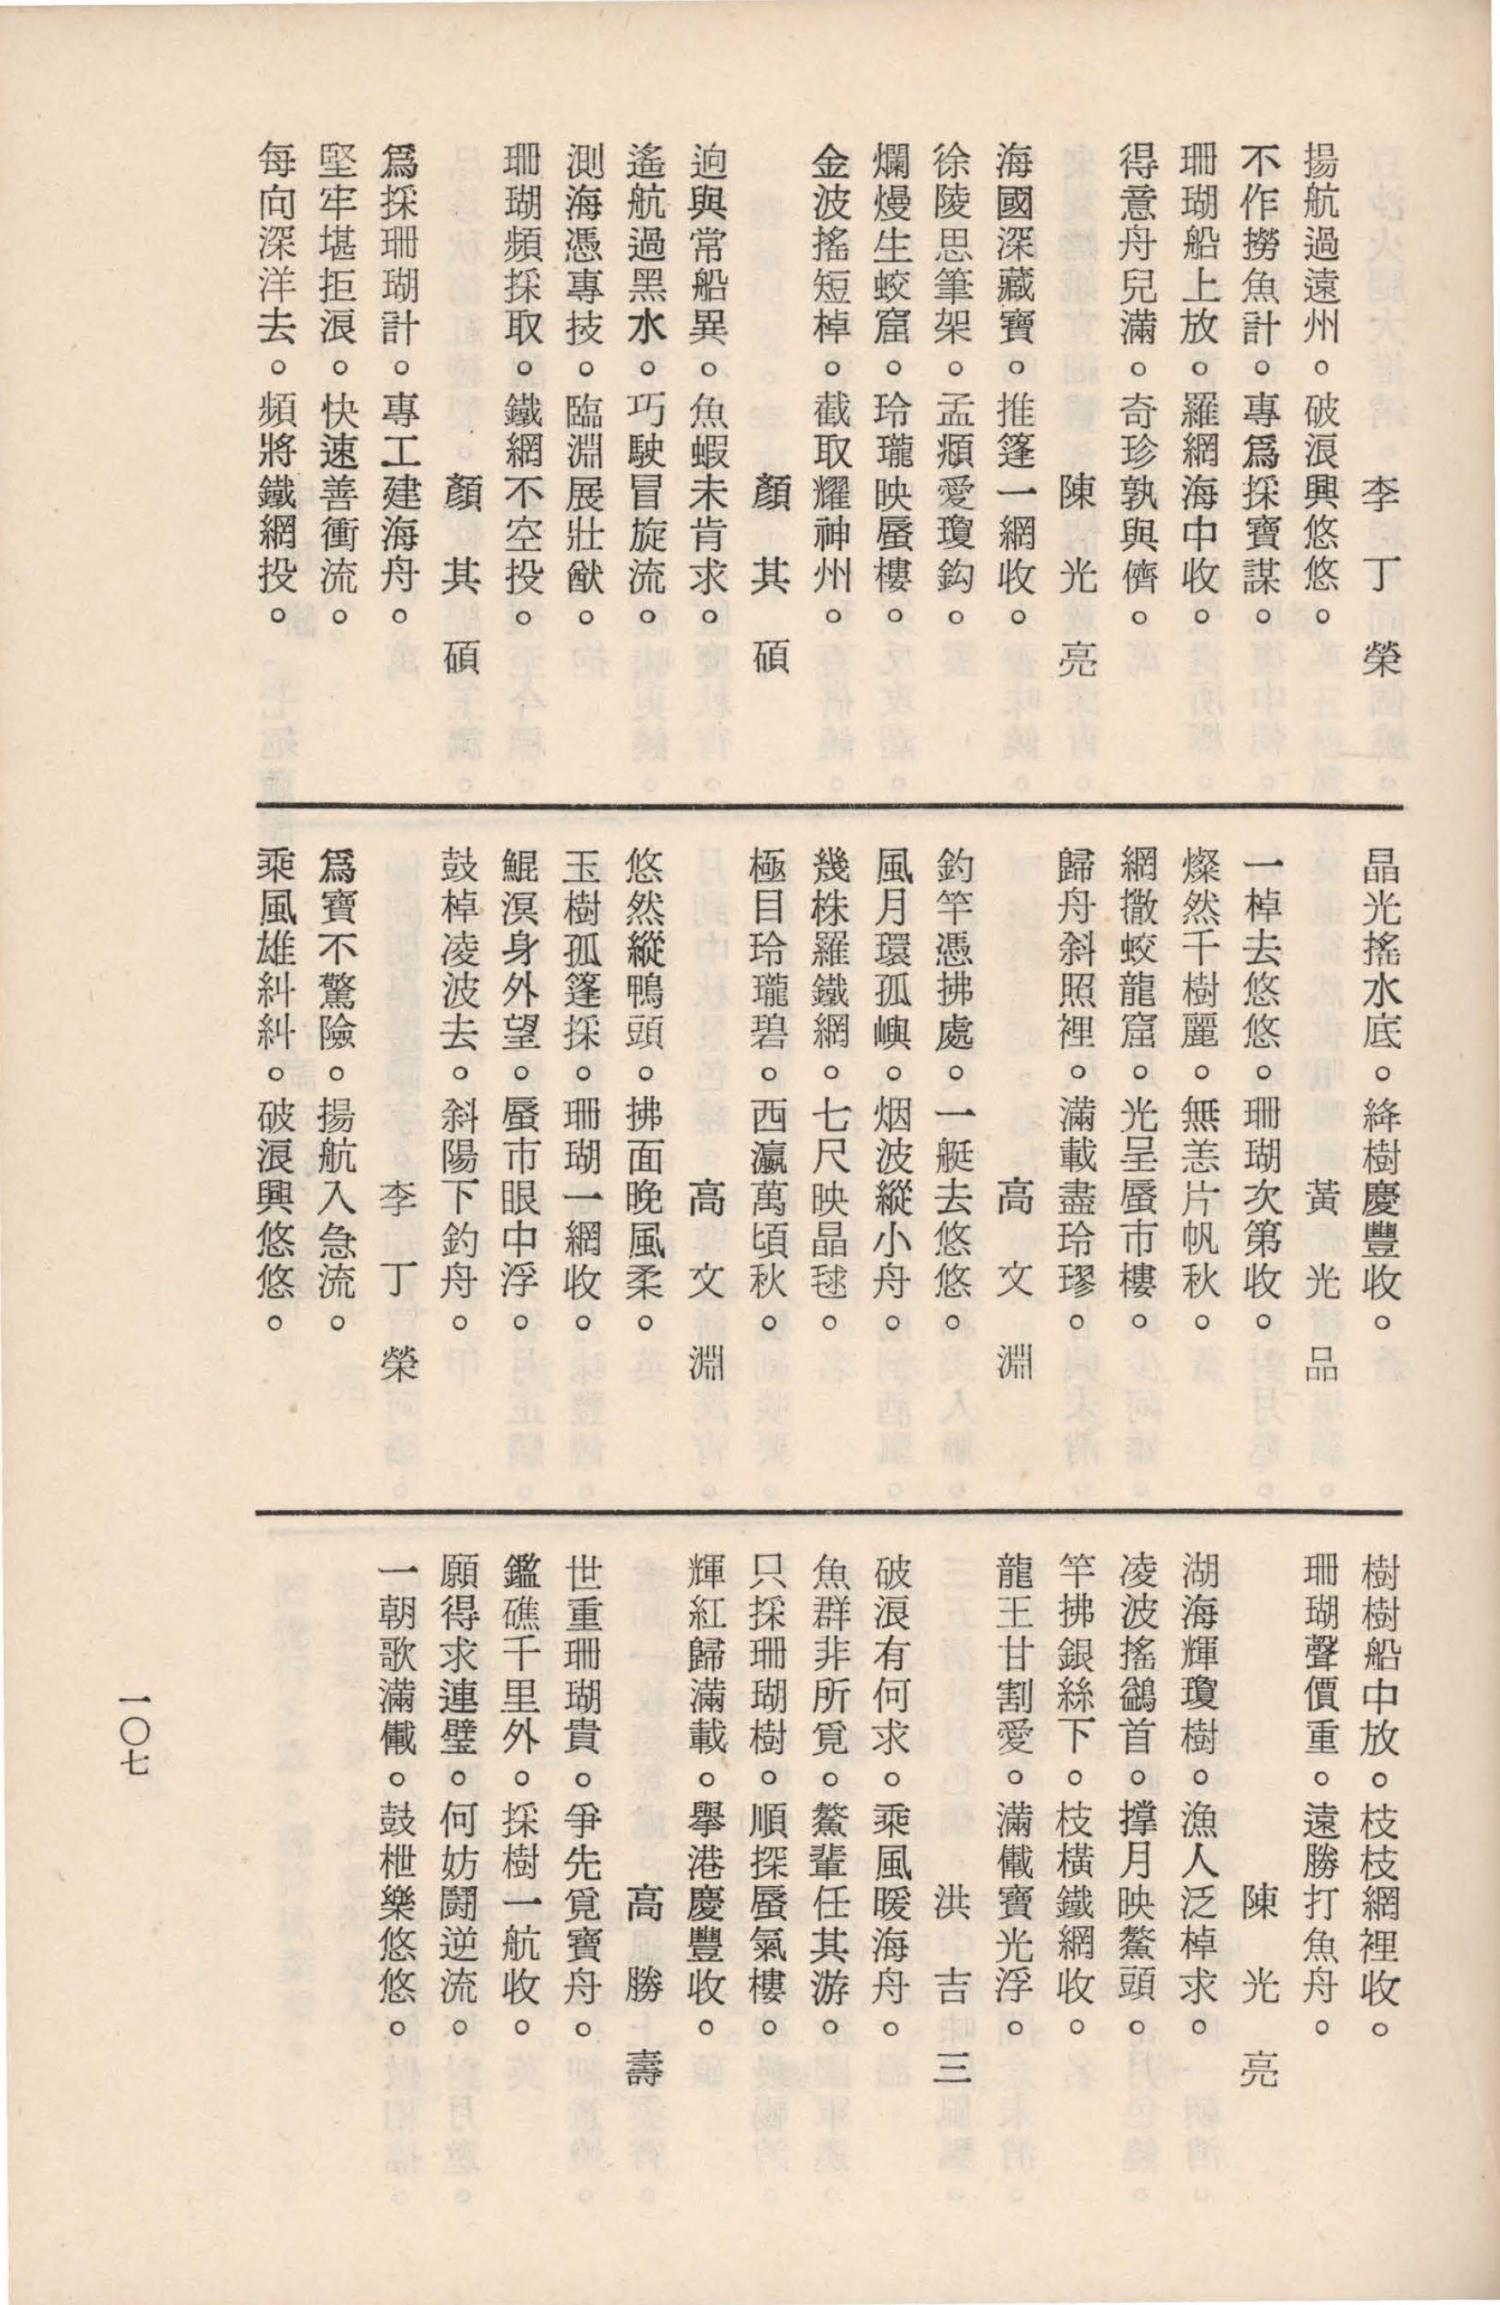 李丁榮
揚航過遠州。破浪興悠悠。
不作撈魚計。專爲採寶謀。
珊瑚船上放。羅網海中收。
得意舟兒滿。奇珍孰與儕。
陳光亮
海國深藏寶。推篷一網收。
徐陵思筆架。孟頫愛瓊鈎。
爛熳生蛟窟。玲瓏映蜃樓。
金波搖短棹。截取耀神州。
顏其碩
逈與常船異。魚蝦未肯求。
遙航過黑水。巧駛冒旋流。
測海憑專技。臨淵展壯猷。
珊瑚頻採取。鐵網不空投。
顏其碩
爲採珊瑚計。專工建海舟。
堅牢堪拒浪。快速善衝流。
每向深洋去。頻將鐵網投。
晶光搖水底。絳樹慶豐收。
黃光品
一棹去悠悠。珊瑚次第收。
燦然千樹麗。無恙片帆秋。
網撒蛟龍窟。光呈蜃市樓。
歸舟斜照裡。滿載盡玲璆。
高文淵
釣竿憑拂處。一艇去悠悠。
風月環孤嶼。烟波縱小舟。
幾株羅鐵網。七尺映晶毬。
極目玲瓏碧。西瀛萬頃秋。
高文淵
悠然縱鴨頭。拂面晚風柔。
玉樹孤篷採。珊瑚一網收。
鯤溟身外望。蜃市眼中浮。
鼓棹凌波去。斜陽下釣舟。
李丁榮
爲寶不驚險。揚航入急流。
乘風雄糾糾。破浪興悠悠。
樹樹船中放。枝枝網裡收。
珊瑚聲價重。遠勝打魚舟。
陳光亮
湖海輝瓊樹。漁人泛棹求。
凌波搖鷁首。撐月映鰲頭。
竿拂銀絲下。枝橫鐵網收。
龍王甘割愛。滿儎寶光浮。
洪吉三
破浪有何求。乘風暖海舟。
魚群非所覓。鰲輩任其游。
只採珊瑚樹。順探蜃氣樓。
輝紅歸滿載。擧港慶豐收。
高勝壽
世重珊瑚貴。爭先覓寶舟。
鑑礁千里外。採樹一航收。
願得求連璧。何妨鬪逆流。
一朝歌滿儎。鼓枻樂悠悠。
一〇七